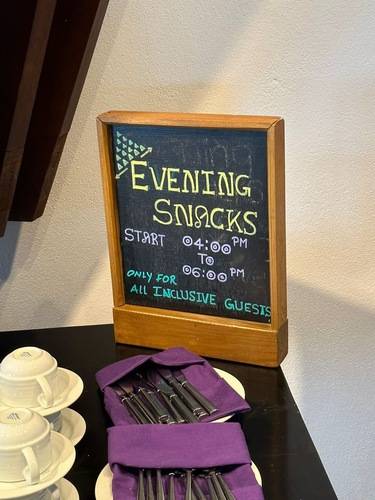 EVENING
SNACKS
START 04:00 PM
TO
06:00 PM
ONLY FOR
ALL INCLUSIVE GUESTS